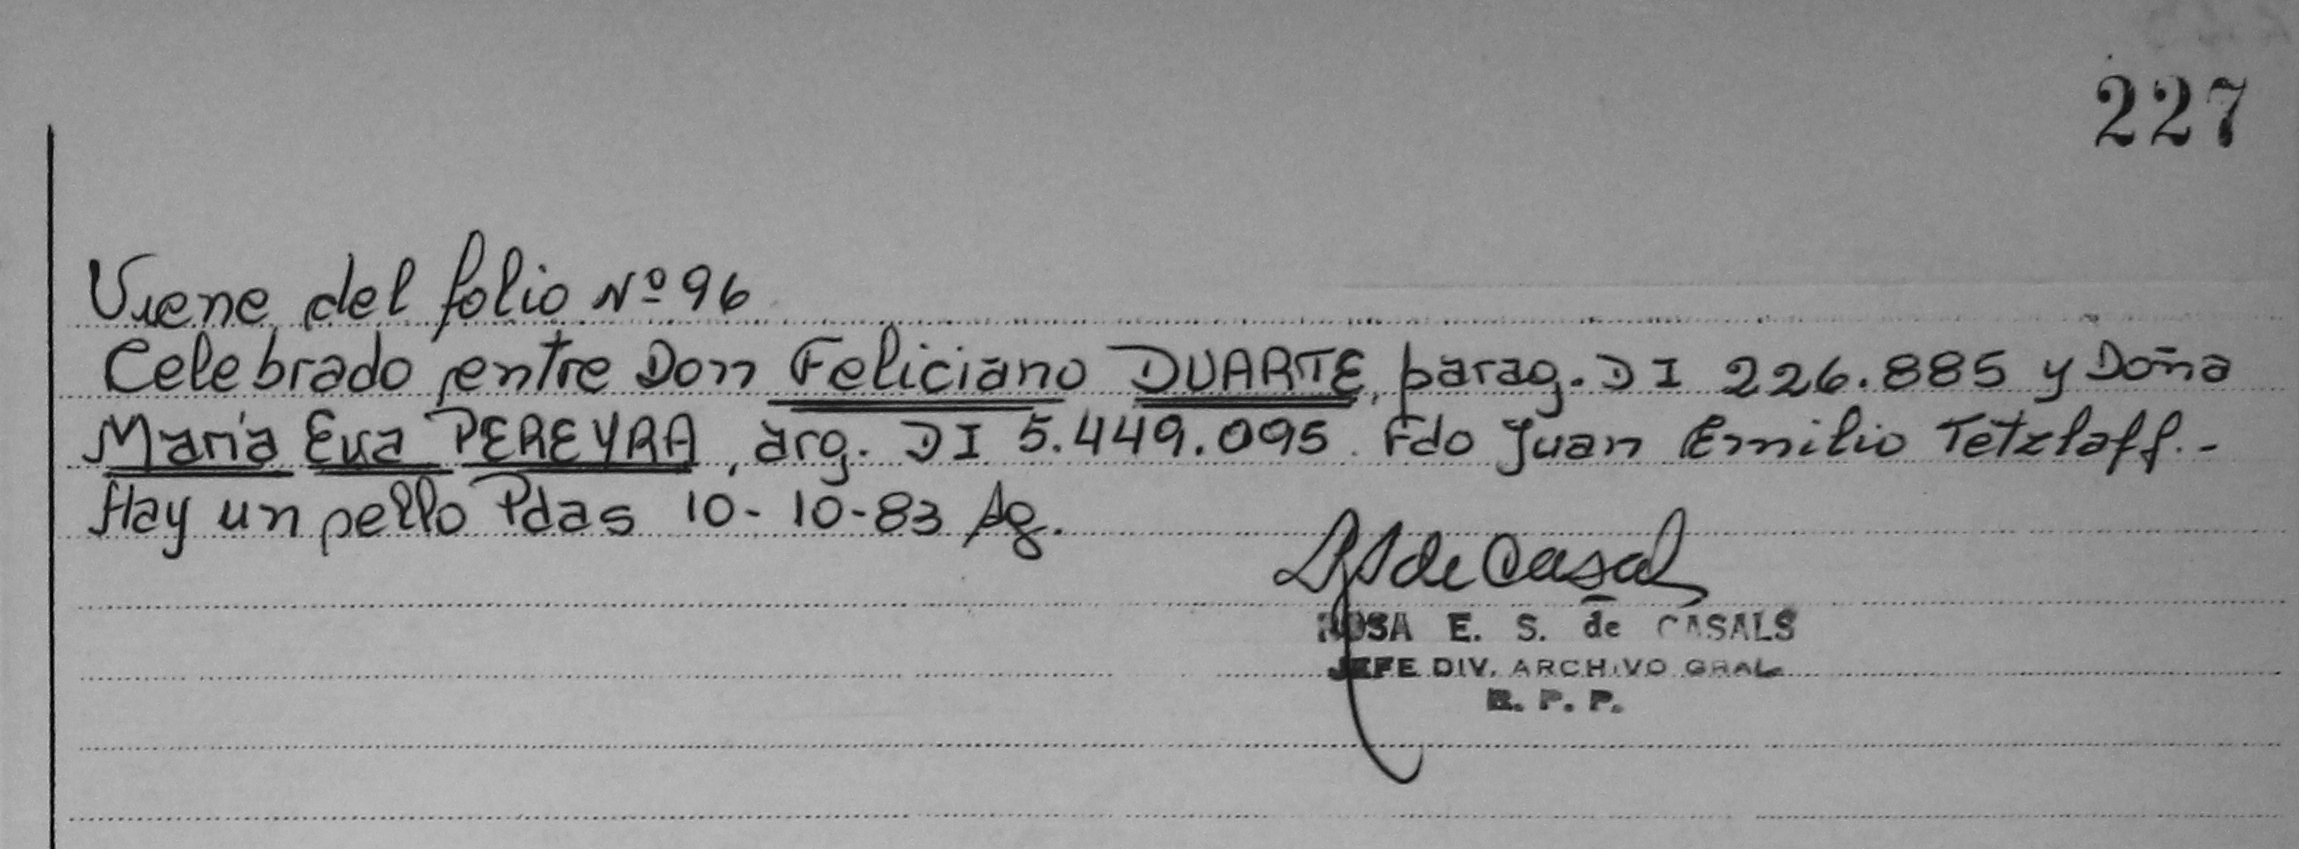 227
Viene del folio Nº 96
Celebrado entre Don Feliciano DUARTE, parag. DI 226.885 y Doña
María Eva PEREYRA, arg. DI 5.449.095. Fdo Juan Emilio Tetzlaff.-
Hay un sello Pdas 10-10-83 Ag.
de Casals
ROSA E. S. de CASALS
JEFE DIV. ARCHIVO GRAL.
R. P. P.